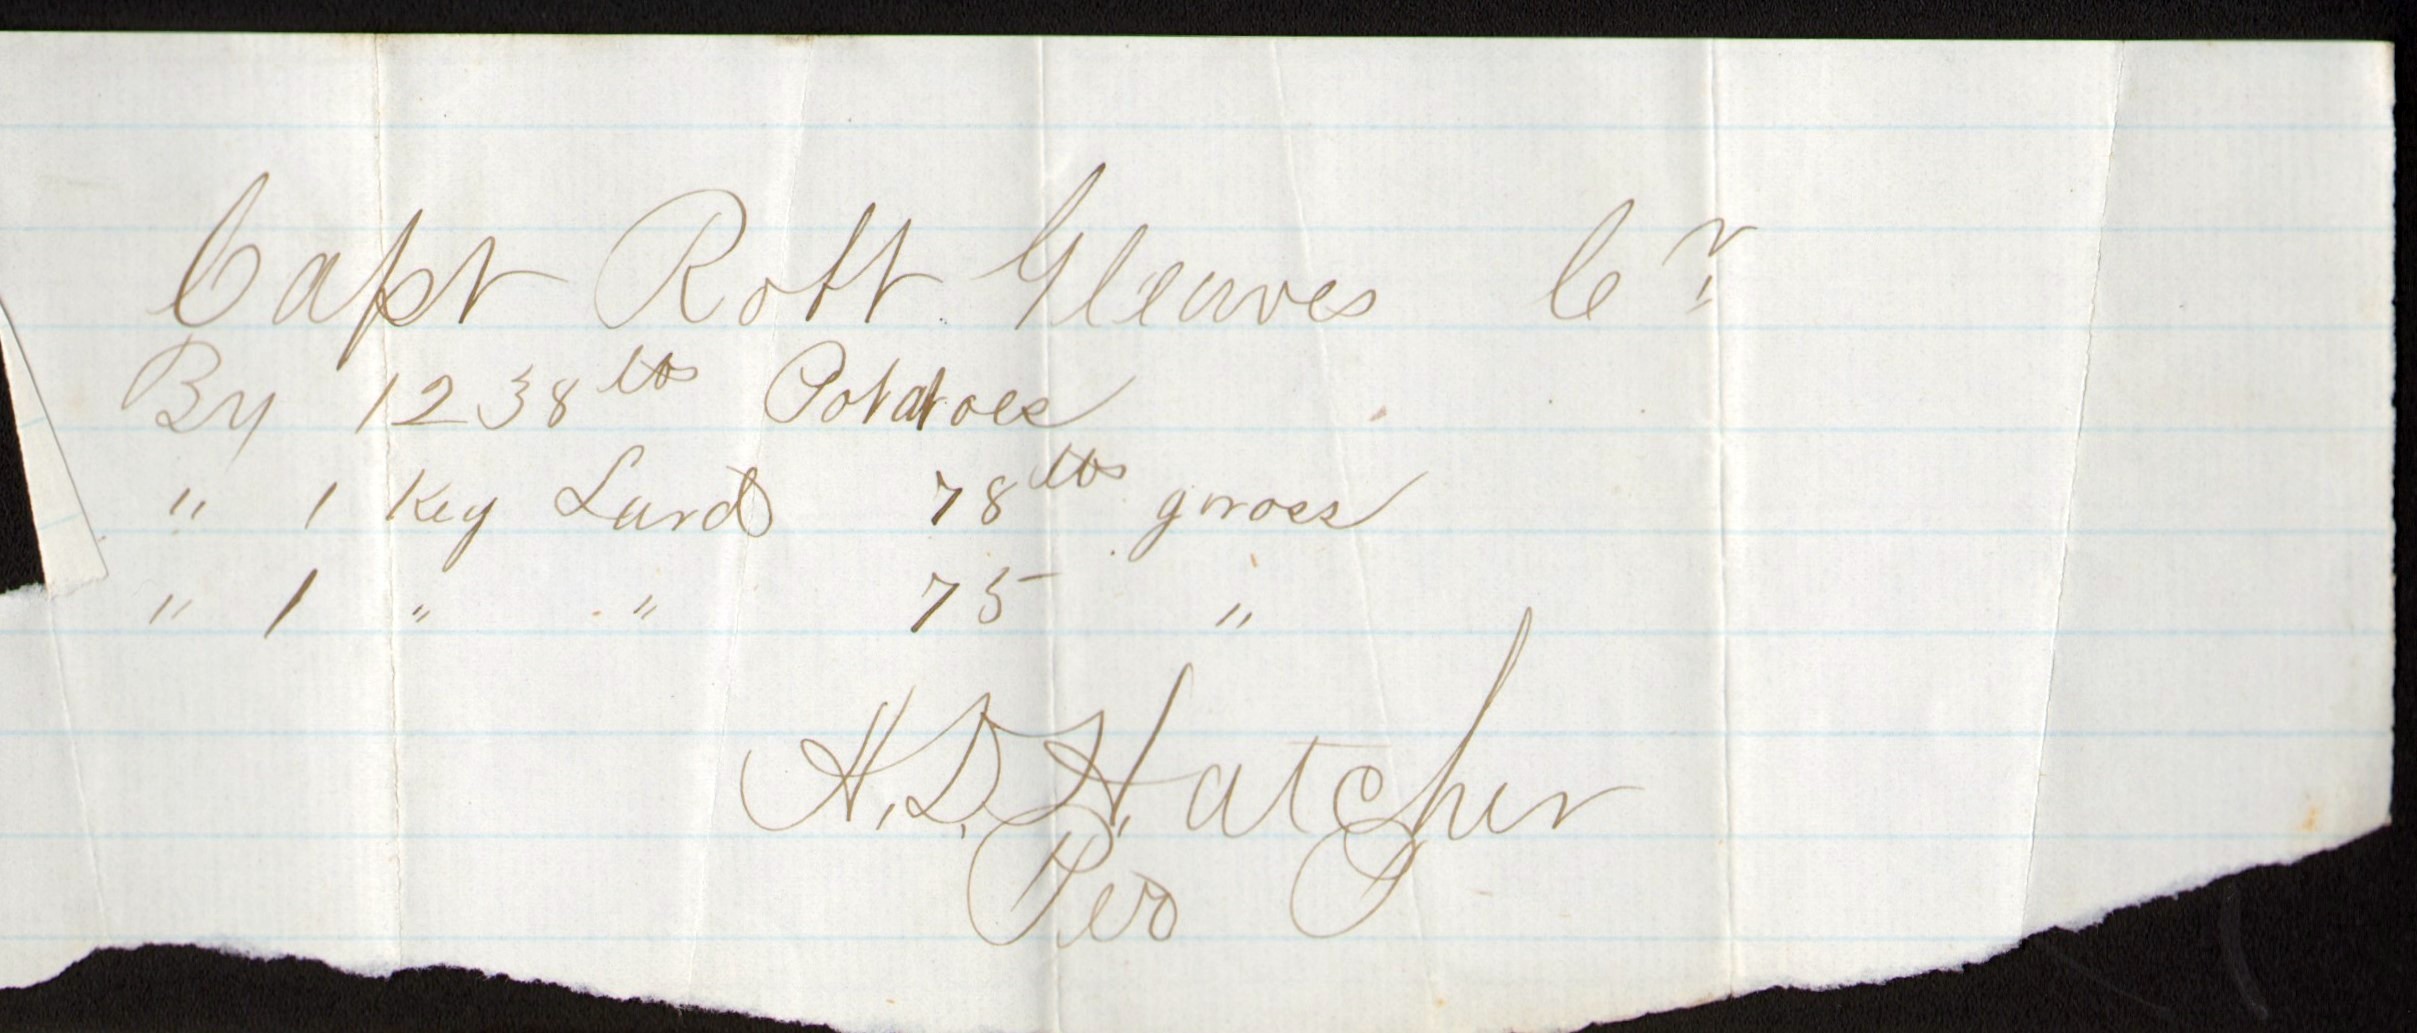 Capt Robt Gleaves Cr
By 1238 lbs Potatoes
" 1 Keg Lard 78 lbs gross
" 1 " " 75 "
H. D. Hatcher
Per P